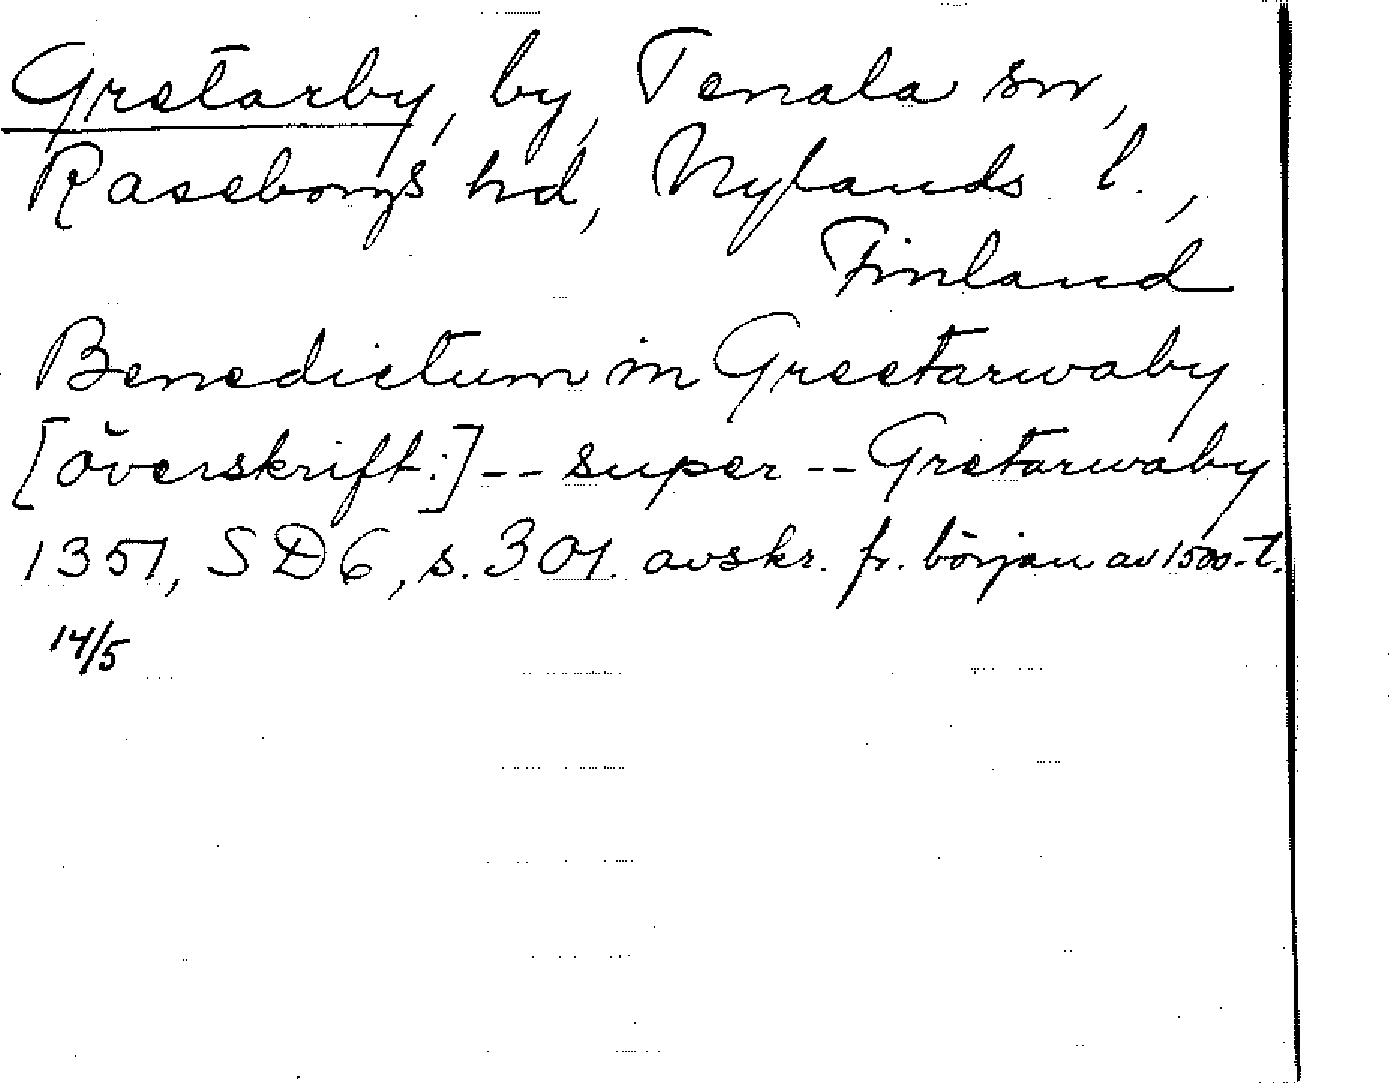 Gretarby, by, Tenala sn,
Raseborgs hd, Nylands l.,
Finland
Benedictum in Greetarwaby
[överskrift:] -- super -- Gretarwaby
1351, SD 6, s. 301. avskr. fr. början av 1500-t.
14/5